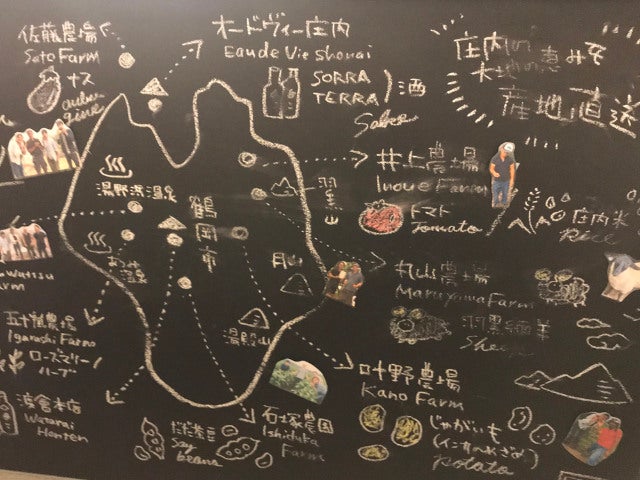 佐藤農場
Sato Farm
ナス
auber
gine
オードヴィー庄内
Eau de Vie Shonai
SORRA
TERRA
酒
Sake
庄内の恵みを
大地の恵
産地直送
井上農場
Inoue Farm
トマト
Tomato
庄内米
Rice
湯野浜温泉
鶴岡市
羽黒山
月山
湯殿山
温泉
丸山農場
Maruyama Farm
羽黒緬羊
Sheep
arm
五十嵐農場
Igarashi Farm
ローズマリー
ハーブ
渡會本店
Watarai
Honten
Soy
beans
石塚農園
Ishiduka
Farm
叶野農場
Kano Farm
じゃがいも
(インカのめざめ)
potato